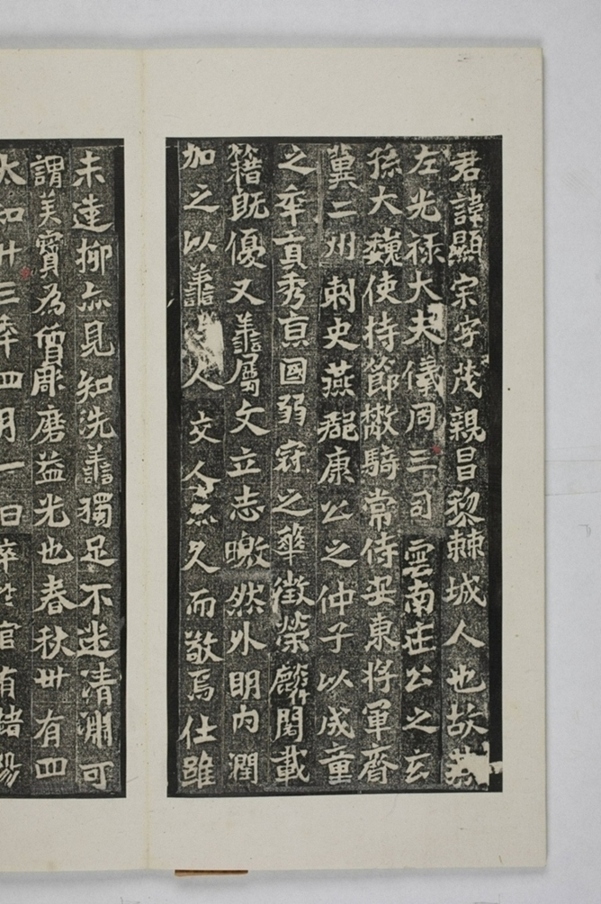 君諱顯宗字茂親昌黎棘城人也故燕
左光祿大夫儀同三司雲南庄公之玄
孫大魏使持節散騎常侍安東將軍齊
冀二州刺史燕郡康公之仲子以成童
之年貢秀京國弱冠之華徵榮麟閣載
籍既優又善屬文立志皦然外明內潤
加之以善人交人亦久而敬焉仕雖
未達抑亦見知洗善獨足不迷清淵可
謂美寶為質彫磨益光也春秋卅有四
太和廿三年四月一日卒於官有赭陽